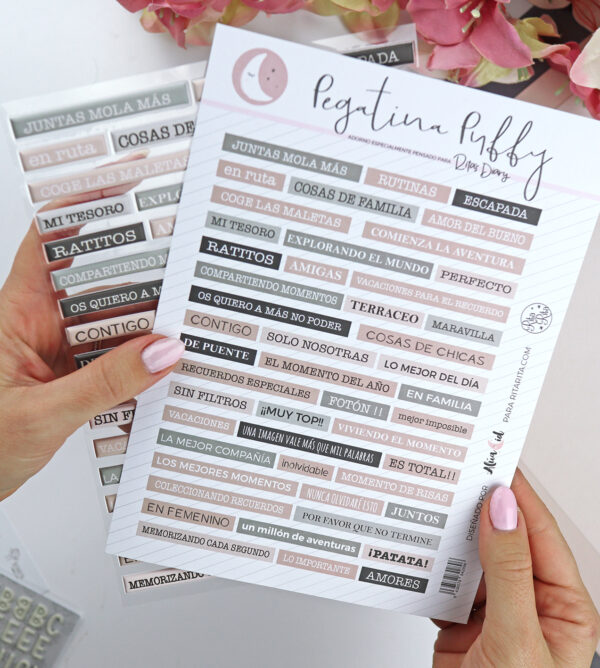 Pegatina Puffy
ADORNO ESPECIALMENTE PENSADO PARA Rita's Diary
JUNTAS MOLA MÁS RUTINAS ESCAPADA
en ruta COSAS DE FAMILIA AMOR DEL BUENO
COGE LAS MALETAS COMIENZA LA AVENTURA
MI TESORO EXPLORANDO EL MUNDO PERFECTO
RATITOS AMIGAS VACACIONES PARA EL RECUERDO
COMPARTIENDO MOMENTOS TERRACEO MARAVILLA
OS QUIERO A MÁS NO PODER COSAS DE CHICAS
CONTIGO SOLO NOSOTRAS LO MEJOR DEL DÍA
DE PUENTE EL MOMENTO DEL AÑO EN FAMILIA
RECUERDOS ESPECIALES FOTÓN !! mejor imposible
SIN FILTROS ¡¡MUY TOP!! VIVIENDO EL MOMENTO
VACACIONES UNA IMAGEN VALE MÁS QUE MIL PALABRAS ES TOTAL!!
LA MEJOR COMPAÑÍA inolvidable MOMENTO DE RISAS
LOS MEJORES MOMENTOS NUNCA OLVIDAR ESTO JUNTOS
COLECCIONANDO RECUERDOS POR FAVOR QUE NO TERMINE
EN FEMENINO un millón de aventuras ¡PATATA!
MEMORIZANDO CADA SEGUNDO LO IMPORTANTE AMORES
DISEÑADO POR Alúa Cid PARA RITARITA.COM
Rita Rita
JUNTAS MOLA MÁS
CAPADA
en ruta COSAS DE
COGE LAS MALETAS
MI TESORO EXPLO
RATITOS
COMPARTIENDO M
OS QUIERO A M
CONTIGO
SIN FI
VACA
LA
MEMORIZANDO